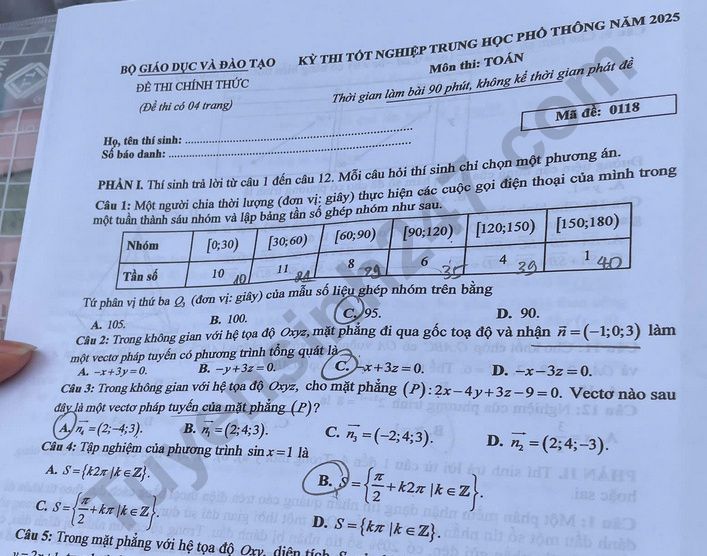 BỘ GIÁO DỤC VÀ ĐÀO TẠO KỲ THI TỐT NGHIỆP TRUNG HỌC PHỔ THÔNG NĂM 2025
ĐỀ THI CHÍNH THỨC Môn thi: TOÁN
(Đề thi có 04 trang) Thời gian làm bài 90 phút, không kể thời gian phát đề
Mã đề: 0118
Họ, tên thí sinh:
Số báo danh:
PHẦN I. Thí sinh trả lời từ câu 1 đến câu 12. Mỗi câu hỏi thí sinh chỉ chọn một phương án.
Câu 1: Một người chia thời lượng (đơn vị: giây) thực hiện các cuộc gọi điện thoại của mình trong
một tuần thành sáu nhóm và lập bảng tần số ghép nhóm như sau.
Nhóm [0;30) [30;60) [60;90) [90;120) [120;150) [150;180)
Tần số 10 10 11 21 8 29 6 35 4 39 1 40
Tứ phân vị thứ ba Q₃ (đơn vị: giây) của mẫu số liệu ghép nhóm trên bằng
A. 105. B. 100. C. 95. D. 90.
Câu 2: Trong không gian với hệ tọa độ Oxyz, mặt phẳng đi qua gốc toạ độ và nhận n⃗ = (−1;0;3) làm
một vectơ pháp tuyến có phương trình tổng quát là
A. −x+3y=0. B. −y+3z=0. C. −x+3z=0. D. −x−3z=0.
Câu 3: Trong không gian với hệ tọa độ Oxyz, cho mặt phẳng (P): 2x−4y+3z−9=0. Vectơ nào sau
đây là một vectơ pháp tuyến của mặt phẳng (P)?
A. n₄⃗ = (2;−4;3). B. n₁⃗ = (2;4;3). C. n₃⃗ = (−2;4;3). D. n₂⃗ = (2;4;−3).
Câu 4: Tập nghiệm của phương trình sin x = 1 là
A. S = {k2π | k ∈ ℤ}. B. S = {π/2 + k2π | k ∈ ℤ}.
C. S = {π/2 + kπ | k ∈ ℤ}. D. S = {kπ | k ∈ ℤ}.
Câu 5: Trong mặt phẳng với hệ tọa độ Oxy, diện tích
Tuyensinh247.com